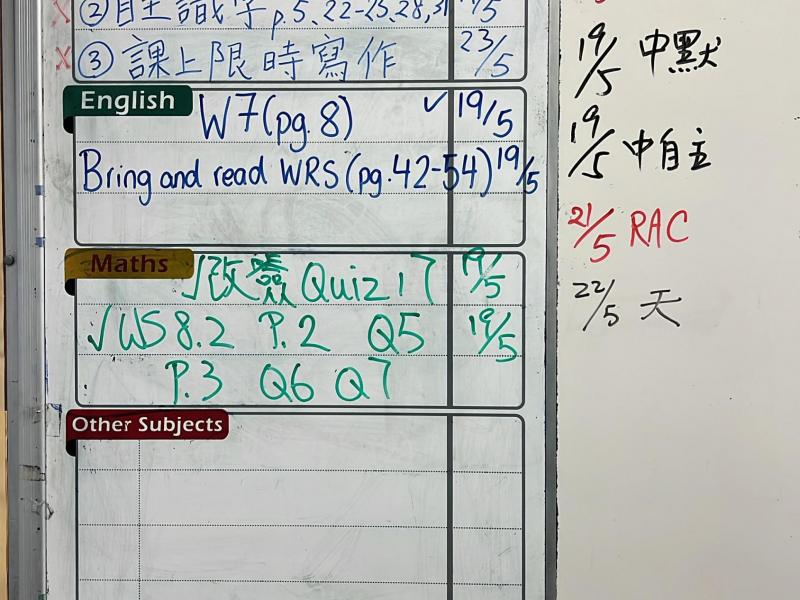 ②自主識字 p.5、22-25,28,31
③課上限時寫作 23/5
English
W7(pg.8) ✓ 19/5
Bring and read WRS (pg.42-54) 19/5
Maths
√改 Quiz 17 19/5
√WS 8.2 P.2 Q5 19/5
P.3 Q6 Q7
Other Subjects
19/5 中默
19/5 中自主
21/5 RAC
22/5 天